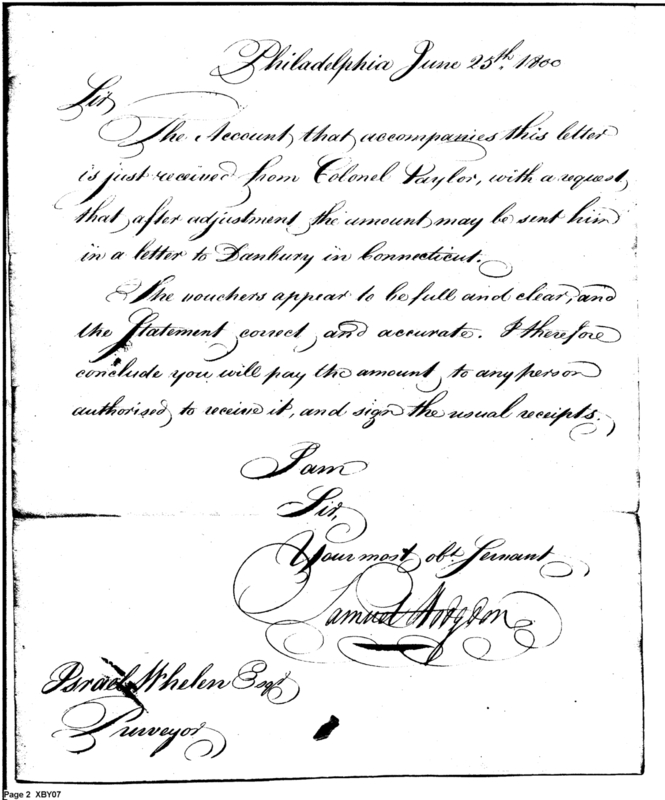 Philadelphia June 25th. 1800
Sir,
The Account, that accompanies this letter
is just received from Colonel Taylor, with a request,
that, after adjustment, the amount, may be sent him
in a letter to Danbury in Connecticut.
The vouchers appear to be full and clear, and
the Statement, correct, and accurate. I therefore
conclude you will pay the amount, to any person
authorised, to receive it, and sign the usual receipts.
I am
Sir,
Your most, obt. Servant
Samuel Hodgdon
Israel Whelen Esqr
Purveyor
Page 2 XBY07